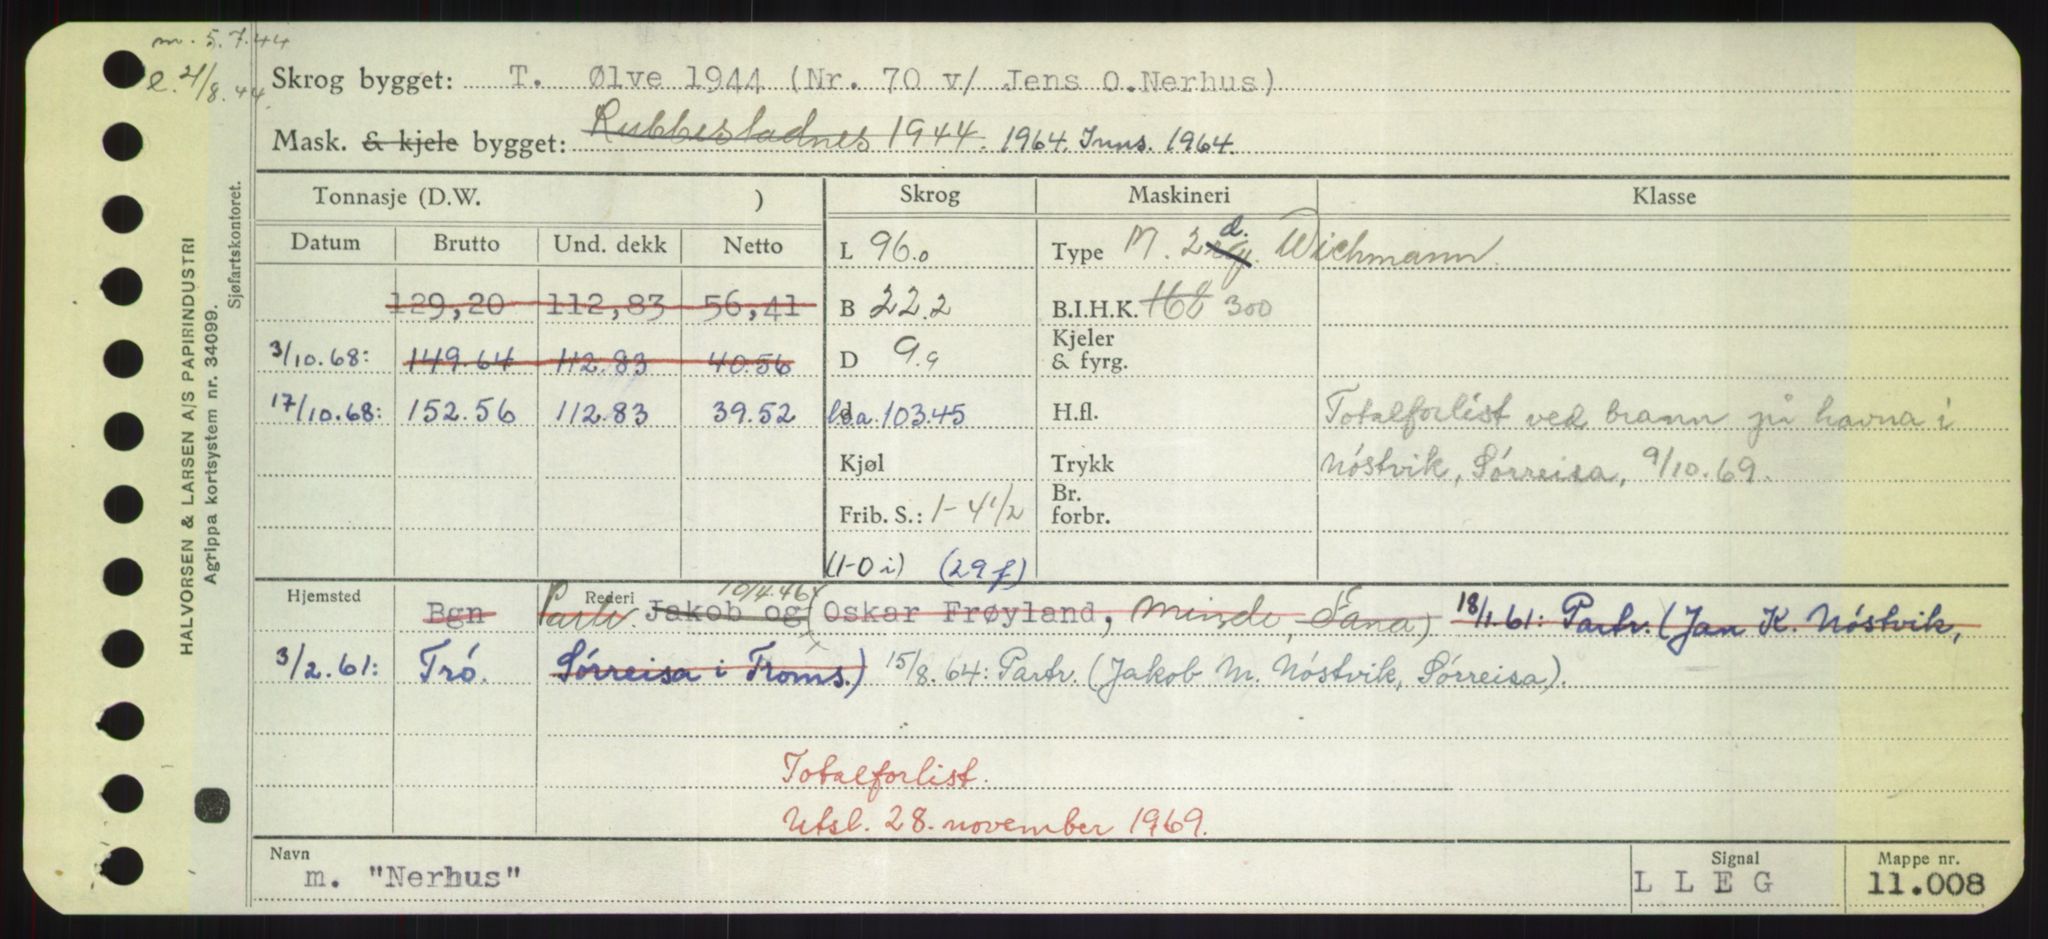 m. 5.7.44
l. 21/8.44
Skrog bygget: T. Ølve 1944 (Nr. 70 v/ Jens O.Nerhus)
Mask. & kjele bygget: Rubbestadnes 1944. 1964. Inns. 1964.
Tonnasje (D.W. ) Skrog Maskineri Klasse
Datum Brutto Und. dekk Netto L 96.0 Type M. 2 d. Wichmann
129,20 112,83 56,41 B 22.2 B.I.H.K. 168 300
3/10.68: 149.64 112.83 40.56 D 9.9 Kjeler & fyrg.
17/10.68: 152.56 112.83 39.52 l.o.a. 103.45 H.fl. Totalforlist ved brann på havna i
Kjøl Trykk Nóstvik, Sórreisa, 9/10.69.
Frib. S.: 1-4 1/2 Br. forbr.
(1-0 i) (29 f)
Hjemsted Rederi 10/4.46
Bgn Partr. Jakob og (Oskar Frøyland, Minde, Fana) 18/1.61: Partr. (Jan K. Nóstvik,
3/2.61: Tró. Sórreisa i Troms.) 15/8.64: Partr. (Jakob M. Nóstvik, Sórreisa).
Totalforlist.
Utsl. 28. november 1969.
Navn Signal Mappe nr.
m. "Nerhus" L L E G 11.008
HALVORSEN & LARSEN A/S PAPIRINDUSTRI
Agrippa kortsystem nr. 34099.
Sjøfartskontoret.